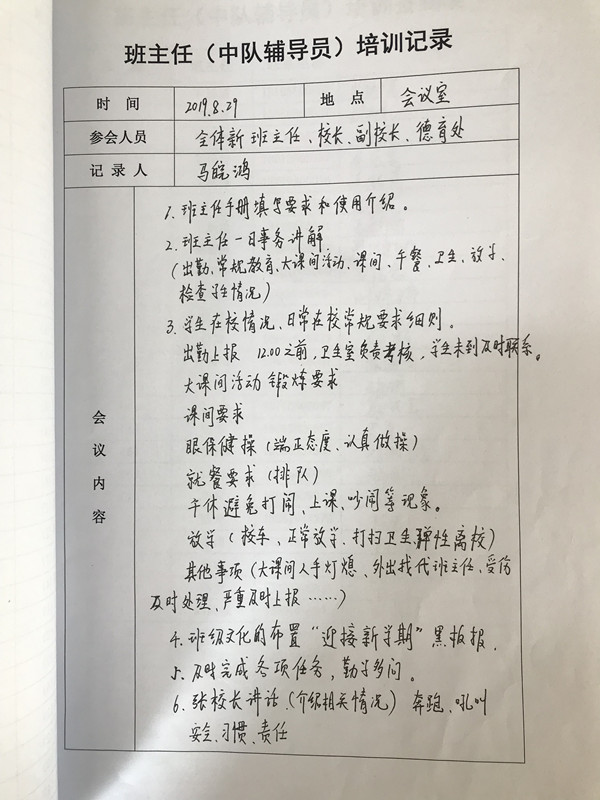 班主任（中队辅导员）培训记录
时 间 2019.8.29 地 点 会议室
参会人员 全体新班主任、校长、副校长、德育处
记录人 马皖鸿
会议内容
1. 班主任手册填写要求和使用介绍。
2. 班主任一日事务讲解
(出勤、常规教育、大课间活动、课间、午餐、卫生、放学、
检查学生情况)
3. 学生在校情况、日常在校常规要求细则。
出勤上报 12.00之前，卫生室负责考核，学生未到及时联系。
大课间活动 锻炼要求
课间要求
眼保健操（端正态度、认真做操）
就餐要求（排队）
午休避免打闹、上课、吵闹等现象。
放学（校车、正常放学、打扫卫生、弹性离校）
其他事项（大课间人手灯熄、外出找代班主任、受伤
及时处理、严重及时上报……）
4. 班级文化的布置“迎接新学期”黑板报.
5. 及时完成各项任务，勤学多问。
6. 张校长讲话（介绍相关情况） 奔跑、吼叫
安全、习惯、责任